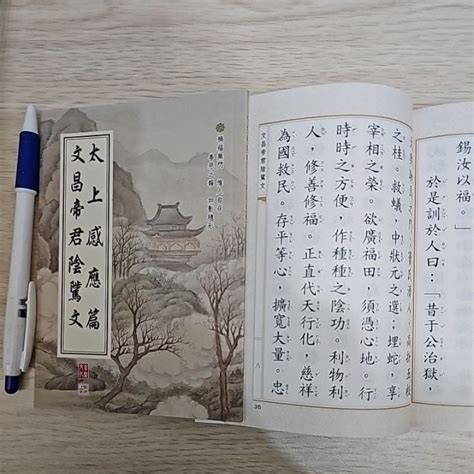 太上感應篇
文昌帝君陰騭文
禍福無門 惟人自召
善惡之報 如影隨形
錫汝以福。」
於是訓於人曰：「昔于公治獄，
氏濟人，高折五枝
之桂。救蟻，中狀元之選；埋蛇，享
宰相之榮。欲廣福田，須憑心地。行
時時之方便，作種種之陰功。利物利
人，修善修福。正直代天行化，慈祥
為國救民。存平等心，擴寬大量。忠
文昌帝君陰騭文
八